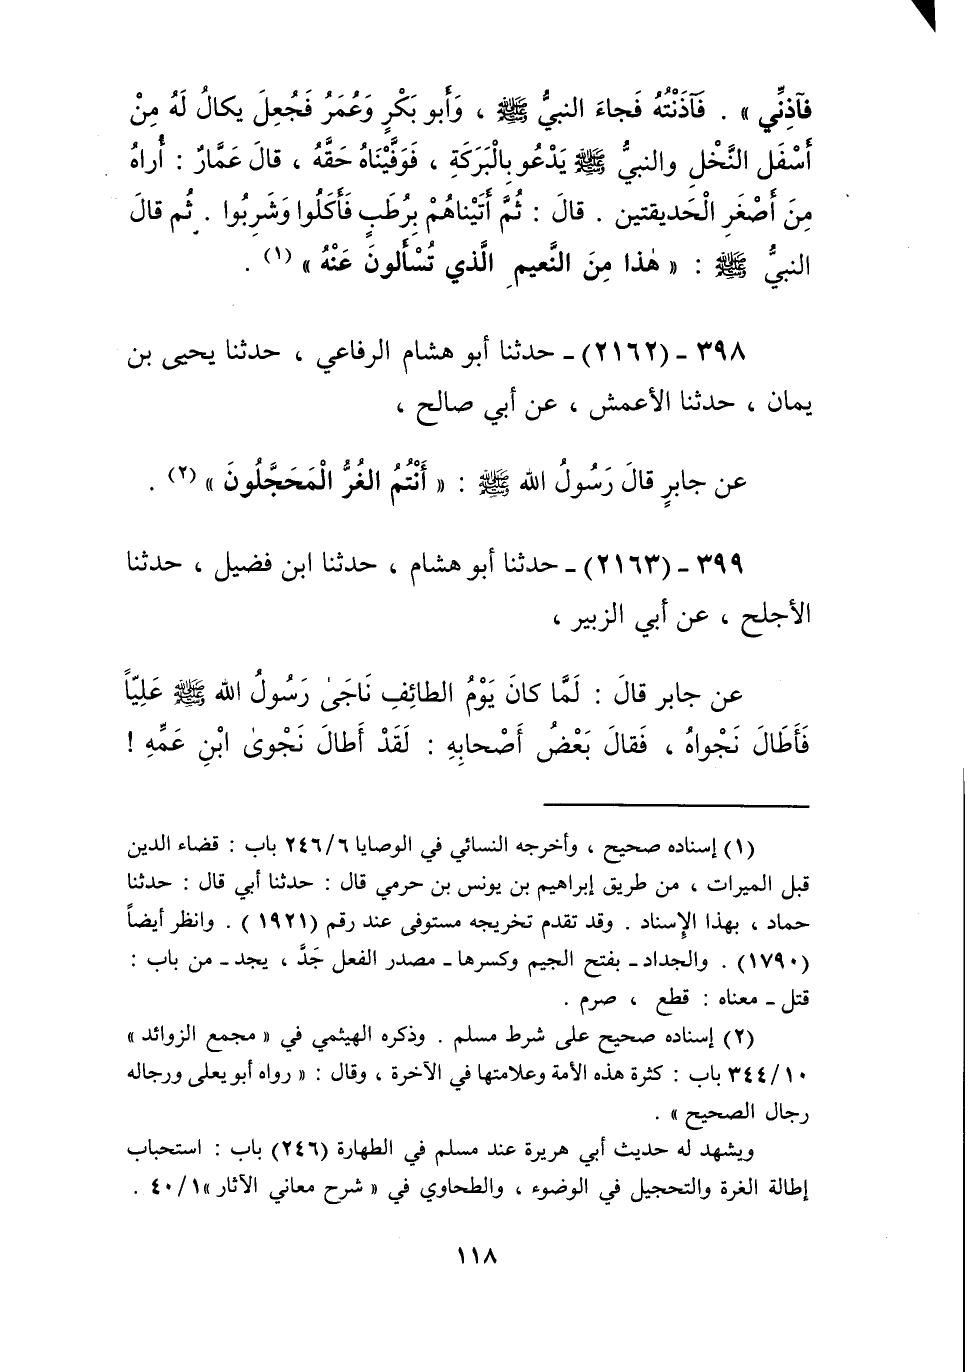 فآذِنِّي » . فَآذَنْتُهُ فَجاءَ النبيُّ ﷺ ، وَأَبو بَكْرٍ وَعُمَرُ فَجُعِلَ يكالُ لَهُ مِنْ
أَسْفَلِ النَّخْلِ والنبيُّ ﷺ يَدْعُو بِالْبَرَكَةِ ، فَوَفَّيْنَاهُ حَقَّهُ ، قالَ عَمَّارٌ : أُراهُ
مِنَ أَصْغَرِ الْحَديقتين . قالَ : ثُمَّ أَتَيْناهُمْ بِرُطَبٍ فَأَكَلُوا وَشَرِبُوا . ثُم قالَ
النبيُّ ﷺ : « هٰذا مِنَ النَّعيمِ الَّذي تُسْأَلونَ عَنْهُ » (١) .
٣٩٨ ـ (٢١٦٢) ـ حدثنا أبو هشام الرفاعي ، حدثنا يحيى بن
يمان ، حدثنا الأعمش ، عن أبي صالح ،
عن جابرٍ قالَ رَسُولُ الله ﷺ : « أَنْتُمُ الغُرُّ الْمَحَجَّلُونَ » (٢) .
٣٩٩ ـ (٢١٦٣) ـ حدثنا أبو هشام ، حدثنا ابن فضيل ، حدثنا
الأجلح ، عن أبي الزبير ،
عن جابر قالَ : لَمَّا كانَ يَوْمُ الطائِفِ نَاجَىٰ رَسُولُ الله ﷺ عَلِيّاً
فَأَطَالَ نَجْواهُ ، فَقالَ بَعْضُ أَصْحابِهِ : لَقَدْ أَطالَ نَجْوىٰ ابْنِ عَمِّهِ !
(١) إسناده صحيح ، وأخرجه النسائي في الوصايا ٢٤٦/٦ باب : قضاء الدين
قبل الميراث ، من طريق إبراهيم بن يونس بن حرمي قال : حدثنا أبي قال : حدثنا
حماد ، بهذا الإسناد . وقد تقدم تخريجه مستوفى عند رقم (١٩٢١ ) . وانظر أيضاً
(١٧٩٠) . والجداد ـ بفتح الجيم وكسرها ـ مصدر الفعل جَدَّ ، يجد ـ من باب :
قتل ـ معناه : قطع ، صرم .
(٢) إسناده صحيح على شرط مسلم . وذكره الهيثمي في « مجمع الزوائد »
٣٤٤/١٠ باب : كثرة هذه الأمة وعلامتها في الآخرة ، وقال : « رواه أبو يعلى ورجاله
رجال الصحيح » .
ويشهد له حديث أبي هريرة عند مسلم في الطهارة (٢٤٦) باب : استحباب
إطالة الغرة والتحجيل في الوضوء ، والطحاوي في « شرح معاني الآثار »٤٠/١ .
١١٨